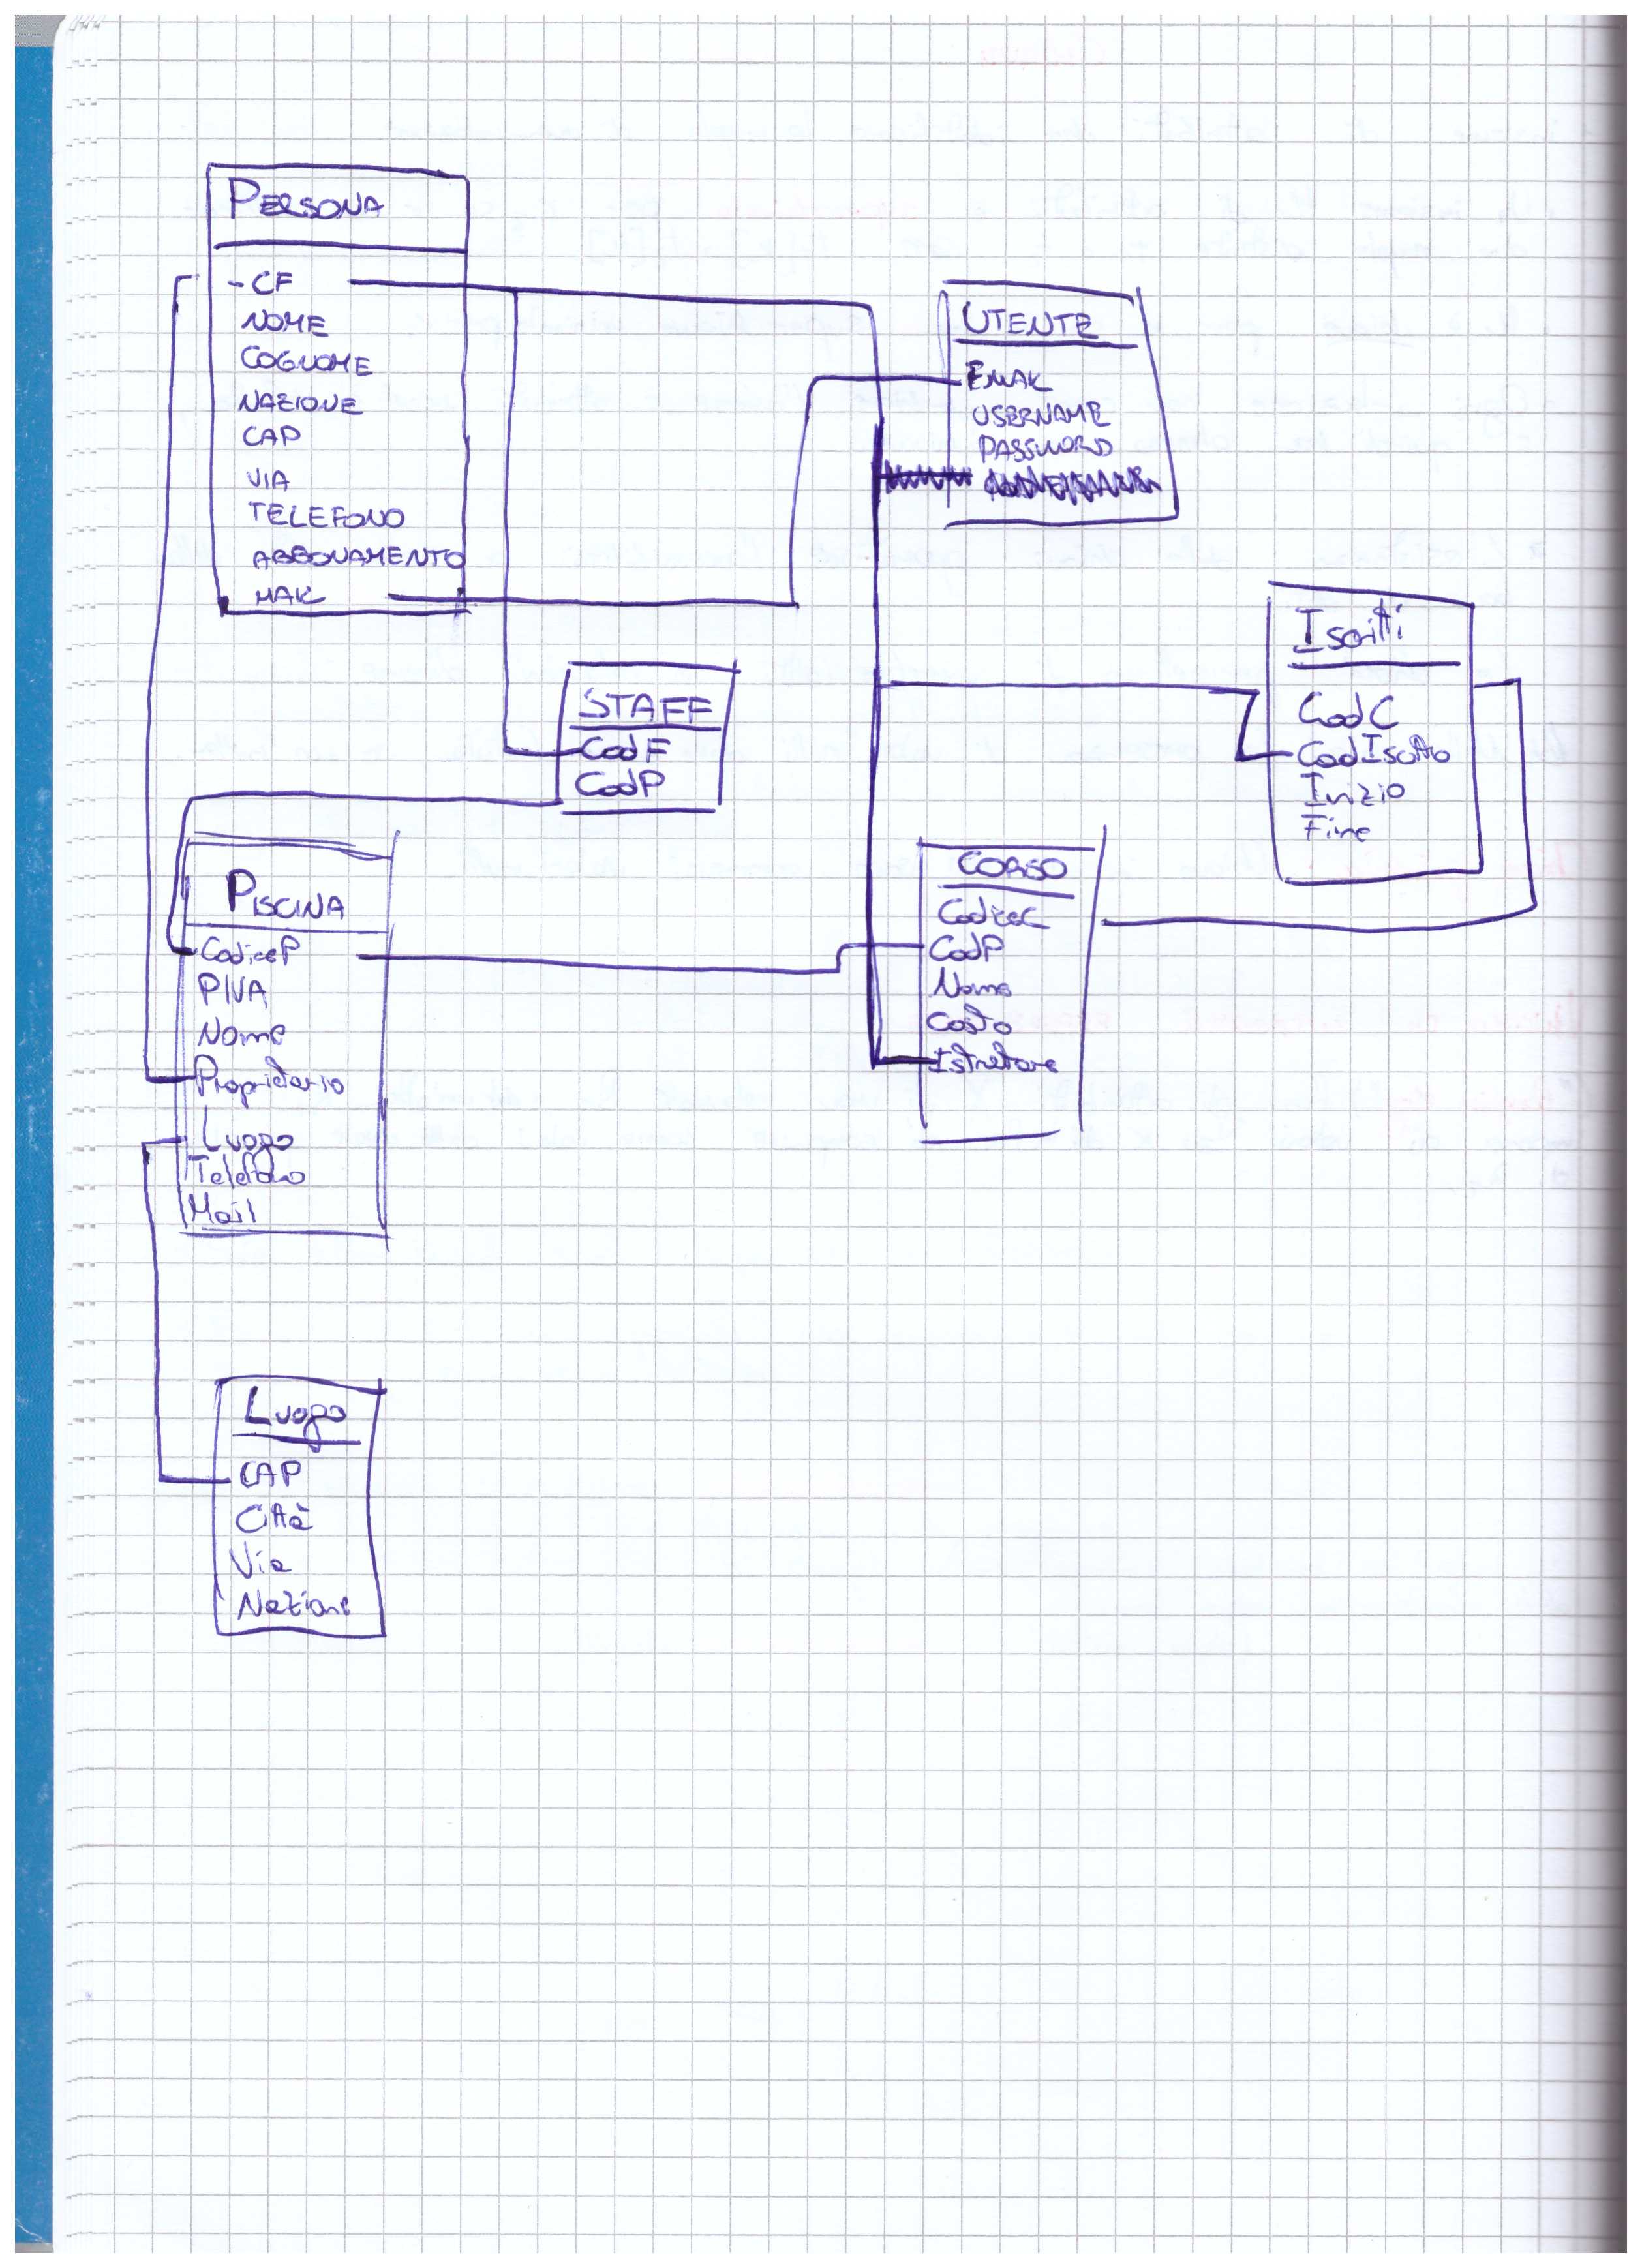 PERSONA
- CF
NOME
COGNOME
NAZIONE
CAP
VIA
TELEFONO
ABBONAMENTO
MAIL
UTENTE
EMAIL
USERNAME
PASSWORD
Iscritti
CodC
CodIscritto
Inizio
Fine
STAFF
CodF
CodP
PISCINA
CodiceP
PIVA
Nome
Proprietario
Luogo
Telefono
Mail
CORSO
CodiceC
CodP
Nome
Costo
Istruttore
Luogo
CAP
Città
Via
Nazione